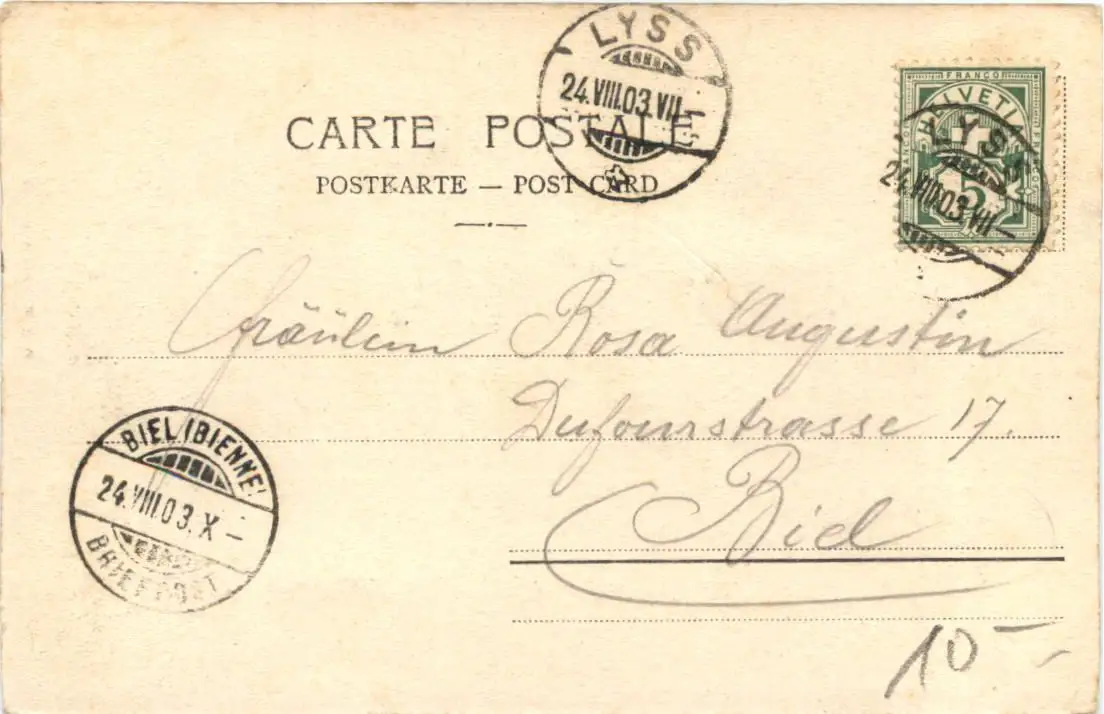 LYSS
24.VIII.03.VII–
CARTE POSTALE
POSTKARTE — POST CARD
FRANCO
HELVETIA
5
LYSS
24.VIII.03.VII–
Fräulein Rosa Augustin
Dufourstrasse 17.
Biel
BIEL (BIENNE)
24.VIII.03.X–
BRIEFPOST
10–